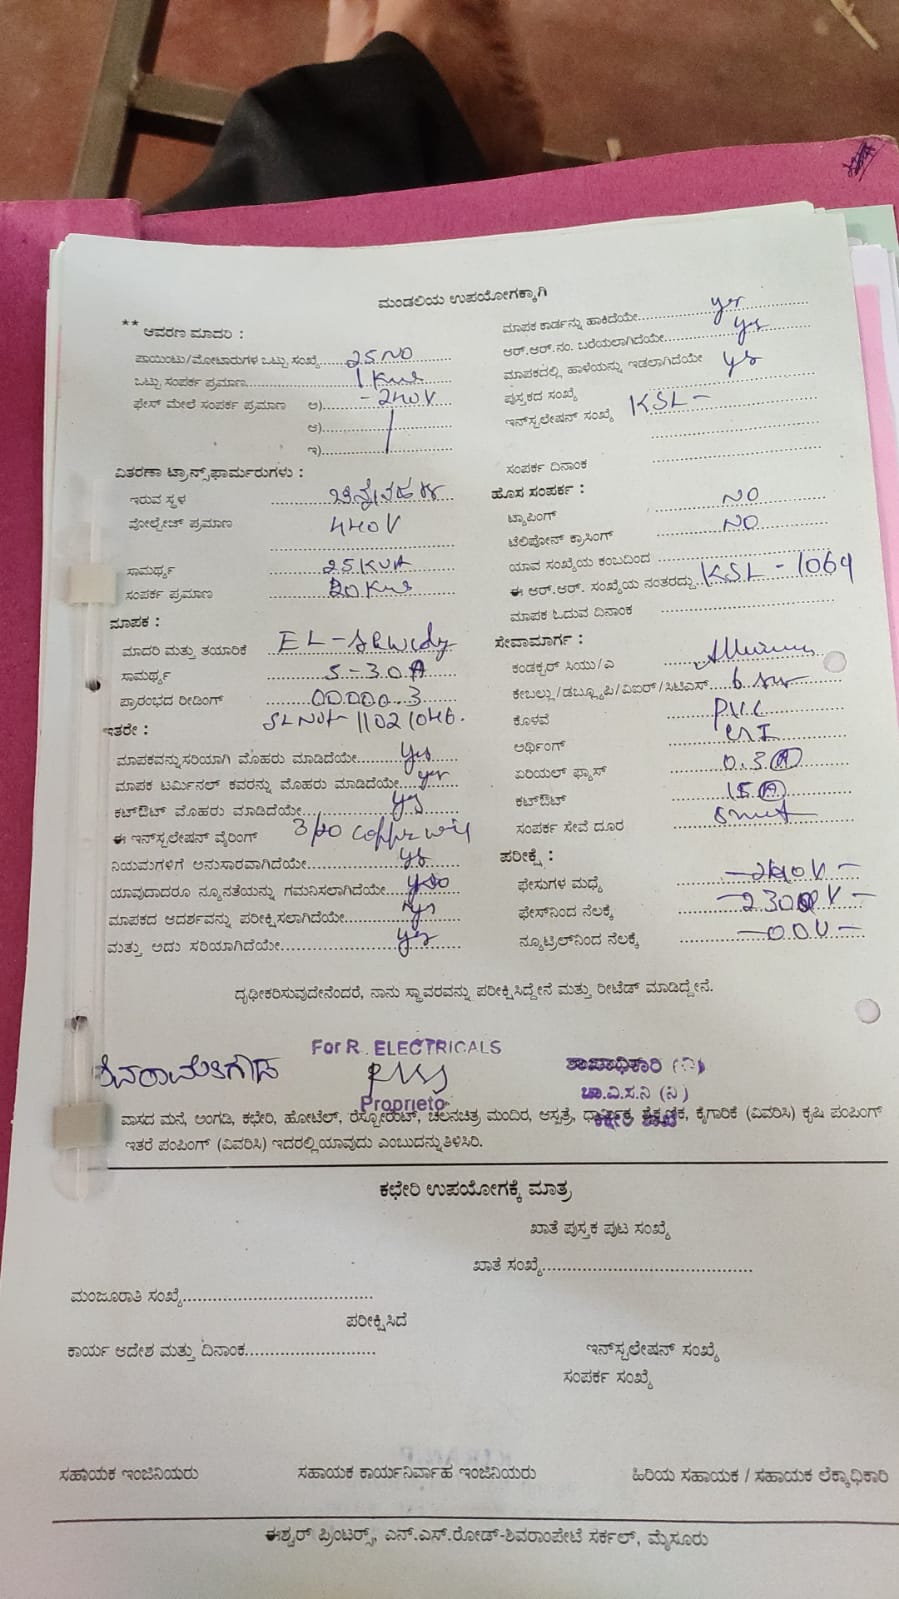 ಮಂಡಲಿಯ ಉಪಯೋಗಕ್ಕಾಗಿ
** ಆವರಣ ಮಾದರಿ :
ಪಾಯಿಂಟು/ಮೋಟಾರುಗಳ ಒಟ್ಟು ಸಂಖ್ಯೆ 25 NO
ಒಟ್ಟು ಸಂಪರ್ಕ ಪ್ರಮಾಣ 1 Kw
ಫೇಸ್ ಮೇಲೆ ಸಂಪರ್ಕ ಪ್ರಮಾಣ ಅ) - 240V
ಆ)
ಇ)
ವಿತರಣಾ ಟ್ರಾನ್ಸ್‌ಫಾರ್ಮರುಗಳು :
ಇರುವ ಸ್ಥಳ
ವೋಲ್ಟೇಜ್ ಪ್ರಮಾಣ 440V
ಸಾಮರ್ಥ್ಯ 25 KVA
ಸಂಪರ್ಕ ಪ್ರಮಾಣ 20 Kw
ಮಾಪಕ :
ಮಾದರಿ ಮತ್ತು ತಯಾರಿಕೆ EL-
ಸಾಮರ್ಥ್ಯ 5-30A
ಪ್ರಾರಂಭದ ರೀಡಿಂಗ್ 00000.3
ಇತರೇ : SL No 11021046.
ಮಾಪಕವನ್ನು ಸರಿಯಾಗಿ ಮೊಹರು ಮಾಡಿದೆಯೇ yes
ಮಾಪಕ ಟರ್ಮಿನಲ್ ಕವರನ್ನು ಮೊಹರು ಮಾಡಿದೆಯೇ yes
ಕಟ್‌ಔಟ್ ಮೊಹರು ಮಾಡಿದೆಯೇ yes
ಈ ಇನ್‌ಸ್ಟಲೇಷನ್ ವೈರಿಂಗ್ 3/20 copper
ನಿಯಮಗಳಿಗೆ ಅನುಸಾರವಾಗಿದೆಯೇ yes
ಯಾವುದಾದರೂ ನ್ಯೂನತೆಯನ್ನು ಗಮನಿಸಲಾಗಿದೆಯೇ
ಮಾಪಕದ ಆದರ್ಶವನ್ನು ಪರೀಕ್ಷಿಸಲಾಗಿದೆಯೇ yes
ಮತ್ತು ಅದು ಸರಿಯಾಗಿದೆಯೇ yes
ಮಾಪಕ ಕಾರ್ಡನ್ನು ಹಾಕಿದೆಯೇ yes
ಆರ್.ಆರ್.ನಂ. ಬರೆಯಲಾಗಿದೆಯೇ yes
ಮಾಪಕದಲ್ಲಿ ಹಾಳೆಯನ್ನು ಇಡಲಾಗಿದೆಯೇ yes
ಪುಸ್ತಕದ ಸಂಖ್ಯೆ
ಇನ್‌ಸ್ಟಲೇಷನ್ ಸಂಖ್ಯೆ KSL -
ಸಂಪರ್ಕ ದಿನಾಂಕ
ಹೊಸ ಸಂಪರ್ಕ :
ಟ್ಯಾಪಿಂಗ್ NO
ಟೆಲಿಪೋನ್ ಕ್ರಾಸಿಂಗ್ NO
ಯಾವ ಸಂಖ್ಯೆಯ ಕಂಬದಿಂದ
ಈ ಆರ್.ಆರ್. ಸಂಖ್ಯೆಯ ನಂತರದ್ದು KSL - 1069
ಮಾಪಕ ಓದುವ ದಿನಾಂಕ
ಸೇವಾಮಾರ್ಗ :
ಕಂಡಕ್ಟರ್ ಸಿಯು/ಎ
ಕೇಬಲ್ಲು/ಡಬ್ಲ್ಯೂಪಿ/ವಿಐರ್/ಸಿಟಿಎಸ್ 6
ಕೊಳವೆ PVC
ಅರ್ಥಿಂಗ್
ಏರಿಯಲ್ ಫ್ಯೂಸ್ 0.3 A
ಕಟ್‌ಔಟ್ 15 A
ಸಂಪರ್ಕ ಸೇವೆ ದೂರ
ಪರೀಕ್ಷೆ :
ಫೇಸುಗಳ ಮಧ್ಯೆ - 240V -
ಫೇಸ್‌ನಿಂದ ನೆಲಕ್ಕೆ - 230 V -
ನ್ಯೂಟ್ರಿಲ್‌ನಿಂದ ನೆಲಕ್ಕೆ - 00V -
ದೃಢೀಕರಿಸುವುದೇನೆಂದರೆ, ನಾನು ಸ್ಥಾವರವನ್ನು ಪರೀಕ್ಷಿಸಿದ್ದೇನೆ ಮತ್ತು ರೀಟೆಡ್ ಮಾಡಿದ್ದೇನೆ.
For R. ELECTRICALS
Proprieto
ಶಾಖಾಧಿಕಾರಿ (ನಿ)
ಚಾ.ವಿ.ಸ.ನಿ (ನಿ)
ವಾಸದ ಮನೆ, ಅಂಗಡಿ, ಕಛೇರಿ, ಹೋಟೆಲ್, ರೆಸ್ಟೋರೆಂಟ್, ಚಲನಚಿತ್ರ ಮಂದಿರ, ಆಸ್ಪತ್ರೆ, ಧಾರ್ಮಿಕ, ಶೈಕ್ಷಣಿಕ, ಕೈಗಾರಿಕೆ (ವಿವರಿಸಿ) ಕೃಷಿ ಪಂಪಿಂಗ್
ಇತರೆ ಪಂಪಿಂಗ್ (ವಿವರಿಸಿ) ಇದರಲ್ಲಿ ಯಾವುದು ಎಂಬುದನ್ನು ತಿಳಿಸಿರಿ.
ಕಛೇರಿ ಉಪಯೋಗಕ್ಕೆ ಮಾತ್ರ
ಖಾತೆ ಪುಸ್ತಕ ಪುಟ ಸಂಖ್ಯೆ
ಖಾತೆ ಸಂಖ್ಯೆ
ಮಂಜೂರಾತಿ ಸಂಖ್ಯೆ
ಪರೀಕ್ಷಿಸಿದೆ
ಕಾರ್ಯ ಆದೇಶ ಮತ್ತು ದಿನಾಂಕ
ಇನ್‌ಸ್ಟಲೇಷನ್ ಸಂಖ್ಯೆ
ಸಂಪರ್ಕ ಸಂಖ್ಯೆ
ಸಹಾಯಕ ಇಂಜಿನಿಯರು ಸಹಾಯಕ ಕಾರ್ಯನಿರ್ವಾಹ ಇಂಜಿನಿಯರು ಹಿರಿಯ ಸಹಾಯಕ / ಸಹಾಯಕ ಲೆಕ್ಕಾಧಿಕಾರಿ
ಈಶ್ವರ್ ಪ್ರಿಂಟರ್ಸ್, ಎನ್.ಎಸ್.ರೋಡ್-ಶಿವರಾಂಪೇಟೆ ಸರ್ಕಲ್, ಮೈಸೂರು